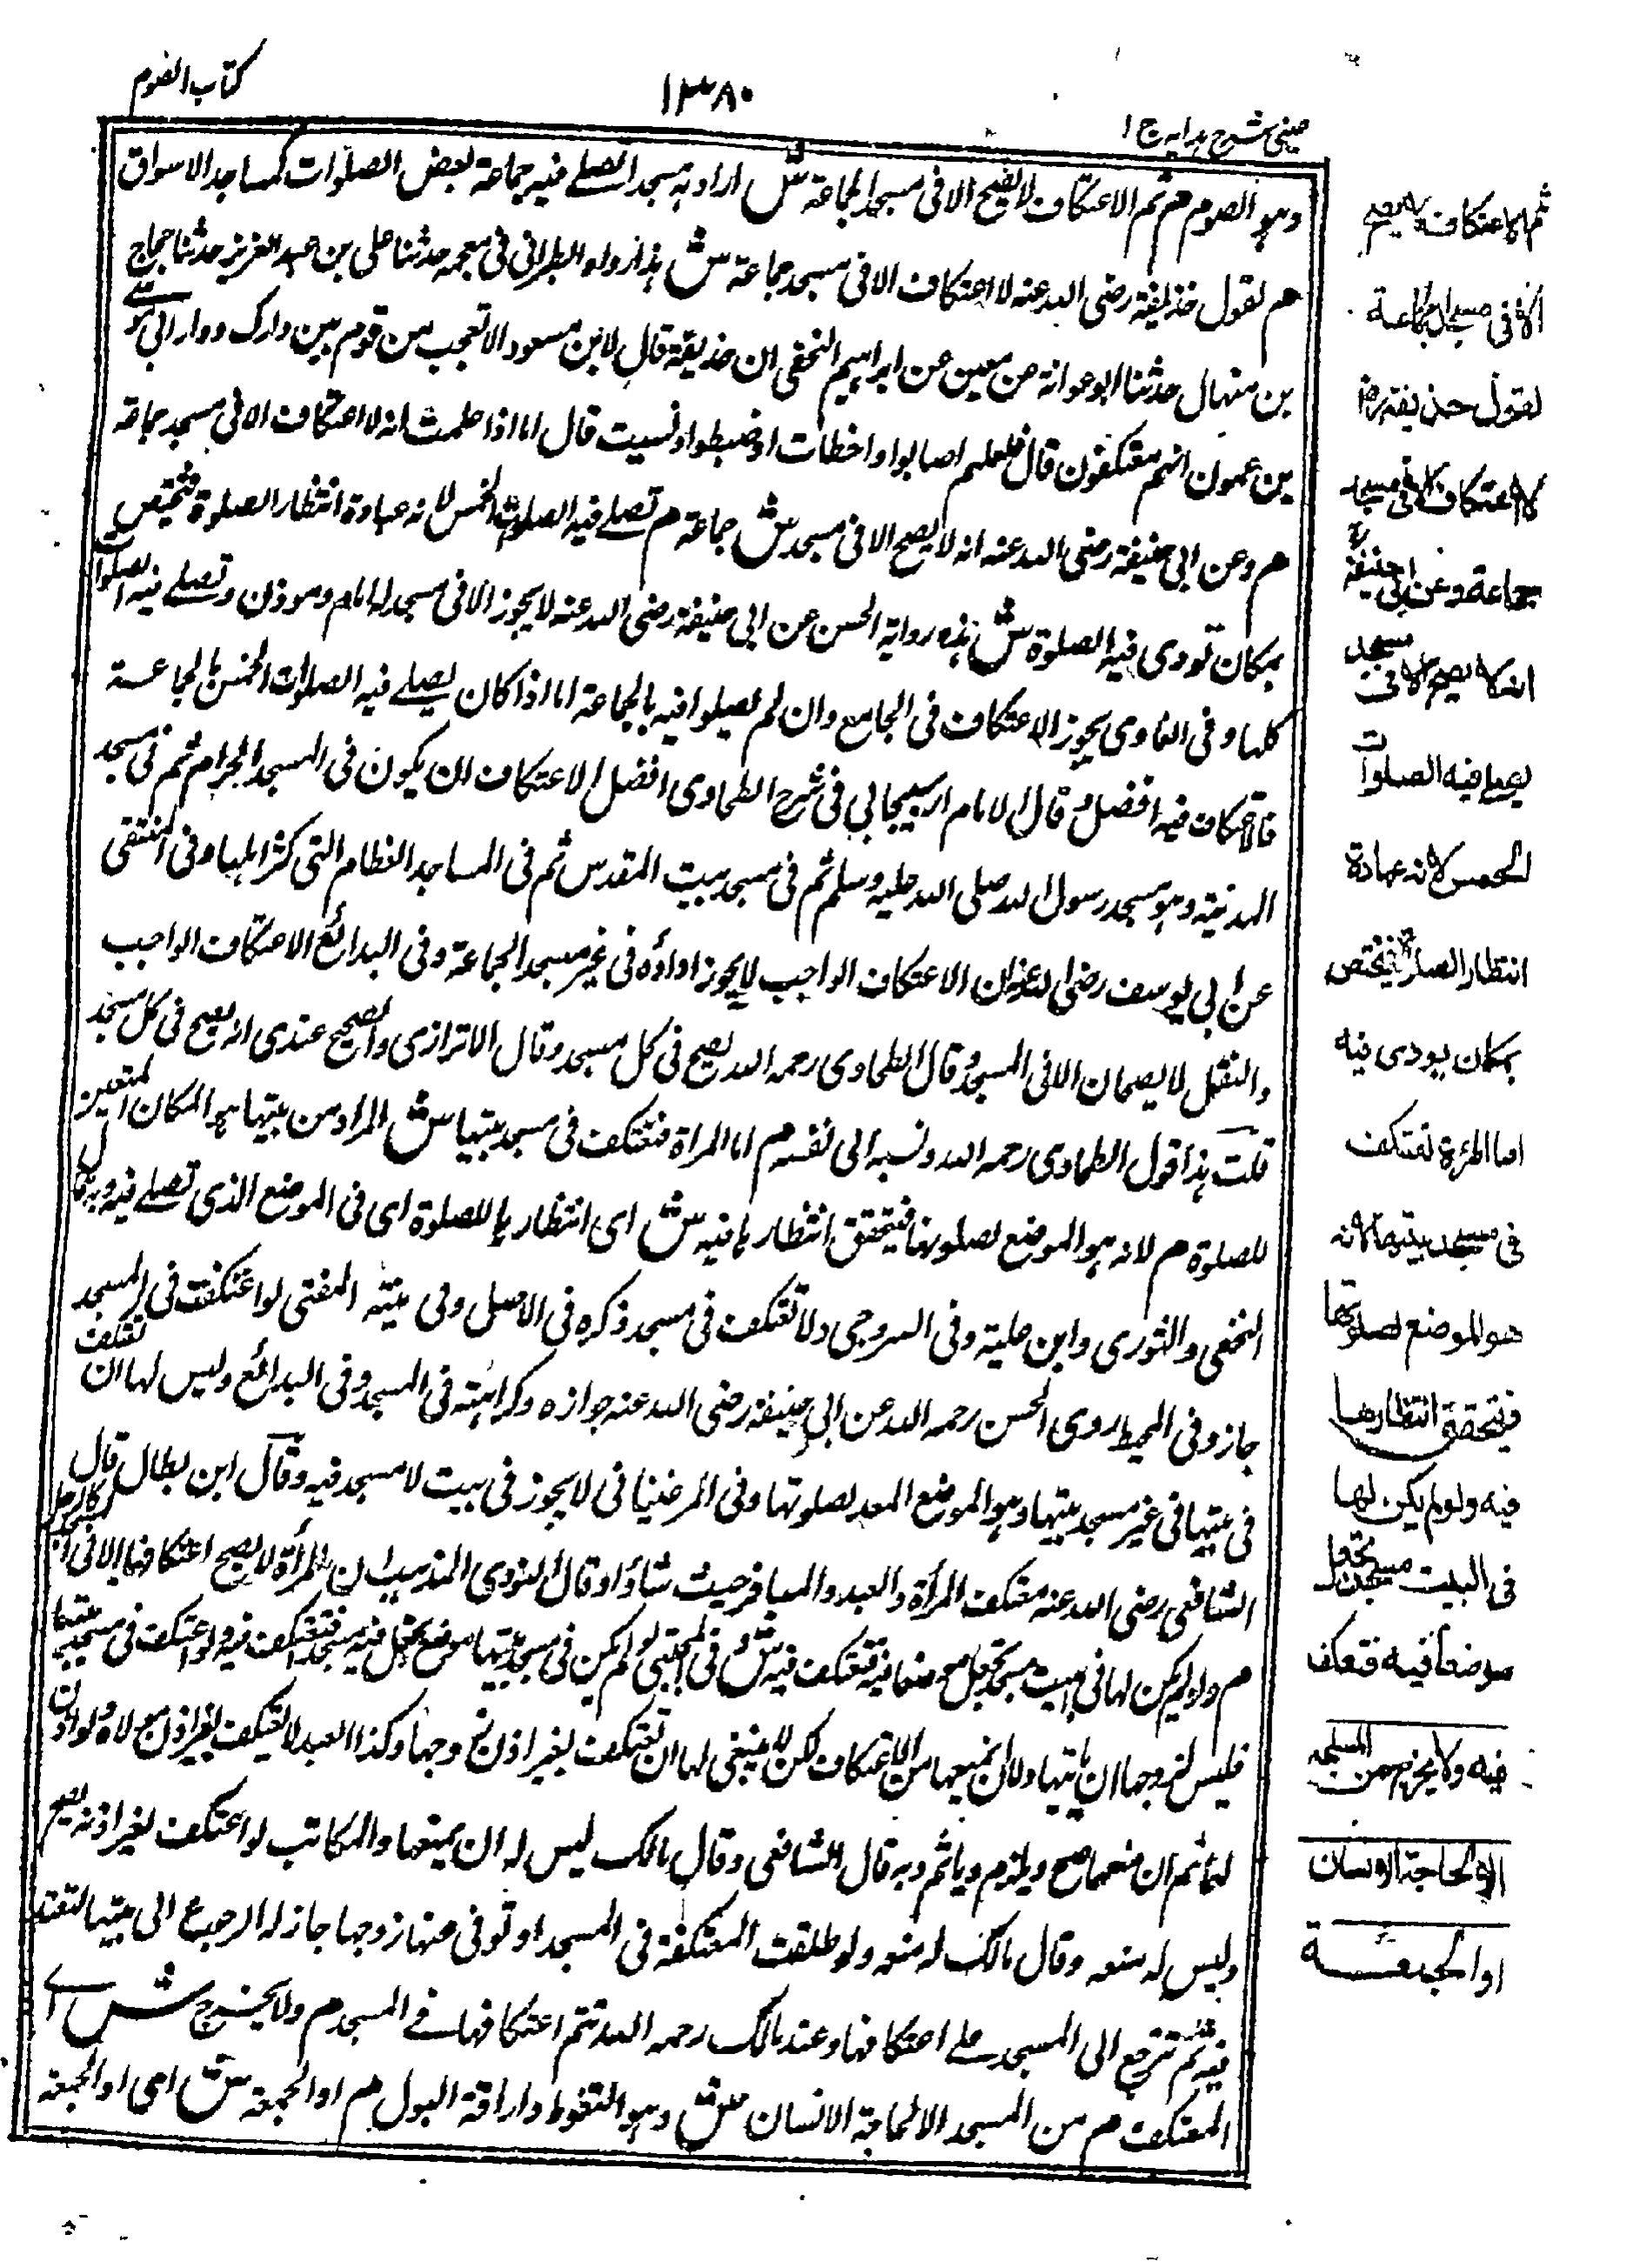 كتاب الصوم
١٣٨٠
عينى شرح هدايه ج ١
وهو الصوم هم ثم الاعتكاف لا يصح الا فى مسجد الجماعة ش اراد به مسجد الصلے فيه جماعة لبعض الصلوات كمساجد الاسواق
هم لقول حذيفة رضى الله عنه لا اعتكاف الا فى مسجد جماعة ش هذا رواه الطبرانى فى معجمه حدثنا على بن عبد العزيز حدثنا حجاج
بن منهال حدثنا ابو عوانة عن معين عن ابراهيم النخعى ان حذيفة قال لابن مسعود الا تعجب من قوم بين دارك ودار ابى موسے
بن عمون انهم معتكفون قال فلعلهم اصابوا واخطات او ضبطوا ونسيت قال اما اذا علمت انه لا اعتكاف الا فى مسجد جماعة
هم وعن ابى حنيفة رضى الله عنه انه لا يصح الا فى مسجد ش جماعة م تصلے فيه الصلوات الخمس لانه عبادة انتظار الصلوة فيختص
بمكان تودى فيه الصلوة ش هذه رواية الحسن عن ابى حنيفة رضى الله عنه لا يجوز الا فى مسجد له امام وموذن وتصلے فيه الصلوات
كلها وفى الفاوى يجوز الاعتكاف فى الجامع وان لم يصلوا فيه بالجماعة اما اذا كان يصلے فيه الصلوات الخمس بالجماعة
فالاعتكاف فيه افضل و قال الامام ارسبيجابى فى شرح الطحاوى افضل الاعتكاف ان يكون فى المسجد الحرام ثم فى مسجد
المدينة وهو مسجد رسول الله صلى الله عليه وسلم ثم فى مسجد بيت المقدس ثم فى المساجد العظام التى كثر اهلها وفى المنتقى
عن ابى يوسف رضى الله عنه ان الاعتكاف الواجب لا يجوز اداؤه فى غير مسجد الجماعة وفى البدائع الاعتكاف الواجب
والنفل لا يصحان الا فى المسجد وقال الطحاوى رحمه الله يصح فى كل مسجد وقال الاترازى والصحيح عندى انه يصح فى كل مسجد
قلت هذا قول الطحاوى رحمه الله ونسبه الى نفسه م اما المراة فتعتكف فى مسجد بيتها ش المراد من بيتها هو المكان المتعين
للصلوة م لانه هو الموضع لصلوتها فيتحقق انتظارها فيه ش اى انتظارها للصلوة اى فى الموضع الذى تصلے فيه وبه قال
النخعى والثورى وابن علية وفى السروجى ولا تعتكف فى مسجد ذكره فى الاصل وفى منية المفتى لو اعتكفت فى المسجد
جاز وفى المحيط روى الحسن رحمه الله عن ابى حنيفة رضى الله عنه جوازه وكراهته فى المسجد وفى البدائع وليس لها ان تعتكف
فى بيتها فى غير مسجد بيتها وهو الموضع المعد لصلوتها وفى المرغينانى لا يجوز فى بيت لا مسجد فيه وقال ابن بطال قال
الشافعى رضى الله عنه تعتكف المرأة والعبد والمسافر حيث شاؤا وقال النووى المذهب ان المرأة لا يصح اعتكافها الا فى المسجد كالرجل
م ولو لم يكن لها فى البيت مسجد تجعل موضعا فيه فتعتكف فيه ش وفى المجتبى لو لم يكن فى مسجد بيتها موضع تجعل فيه مسجدا فتعتكف فيه ولو اعتكفت فى مسجد بيتها
فليس لزوجها ان ياتيها ولا ان يمنعها من الاعتكاف لكن لا ينبغى لها ان تعتكف بغير اذن زوجها وكذا العبد لا يعتكف بغير اذن مولاه ولو اذن
لها ثم ان منعها صح ويلزم وياثم وبه قال الشافعى وقال مالك ليس له ان يمنعها والمكاتب لو اعتكف بغير اذنه يصح
وليس له منعه وقال مالك له منعه ولو طلقت المعتكفة فى المسجد او توفى عنها زوجها جاز له الرجوع الى بيتها لتعتد
فيه ثم ترجع الى المسجد على اعتكافها وعند مالك رحمه الله تتم اعتكافها فے المسجد م ولا يخرج ش اے
المعتكف م من المسجد الا لحاجة الانسان ش وهو التغوط واراقة البول م او الجمعة ش اى او الجمعة
ثم الاعتكاف لا يصح
الا فى مسجد الجماعة
لقول حذيفة رضـ
لا اعتكاف الا فى مسجد
جماعة وعن ابى حنيفة رح
انه لا يصح الا فى مسجد
يصلے فيه الصلوات
الخمس لانه عبادة
انتظار الصلوة فيختص
بمكان يودى فيه
اما المرءة فتعتكف
فى مسجد بيتها لانه
هو الموضع لصلوتها
فيتحقق انتظارها
فيه ولو لم يكن لها
فى البيت مسجد تجعل
موضعا فيه فتعتكف
فيه ولا يخرج من المسجد
الا لحاجة الانسان
او الجمعة